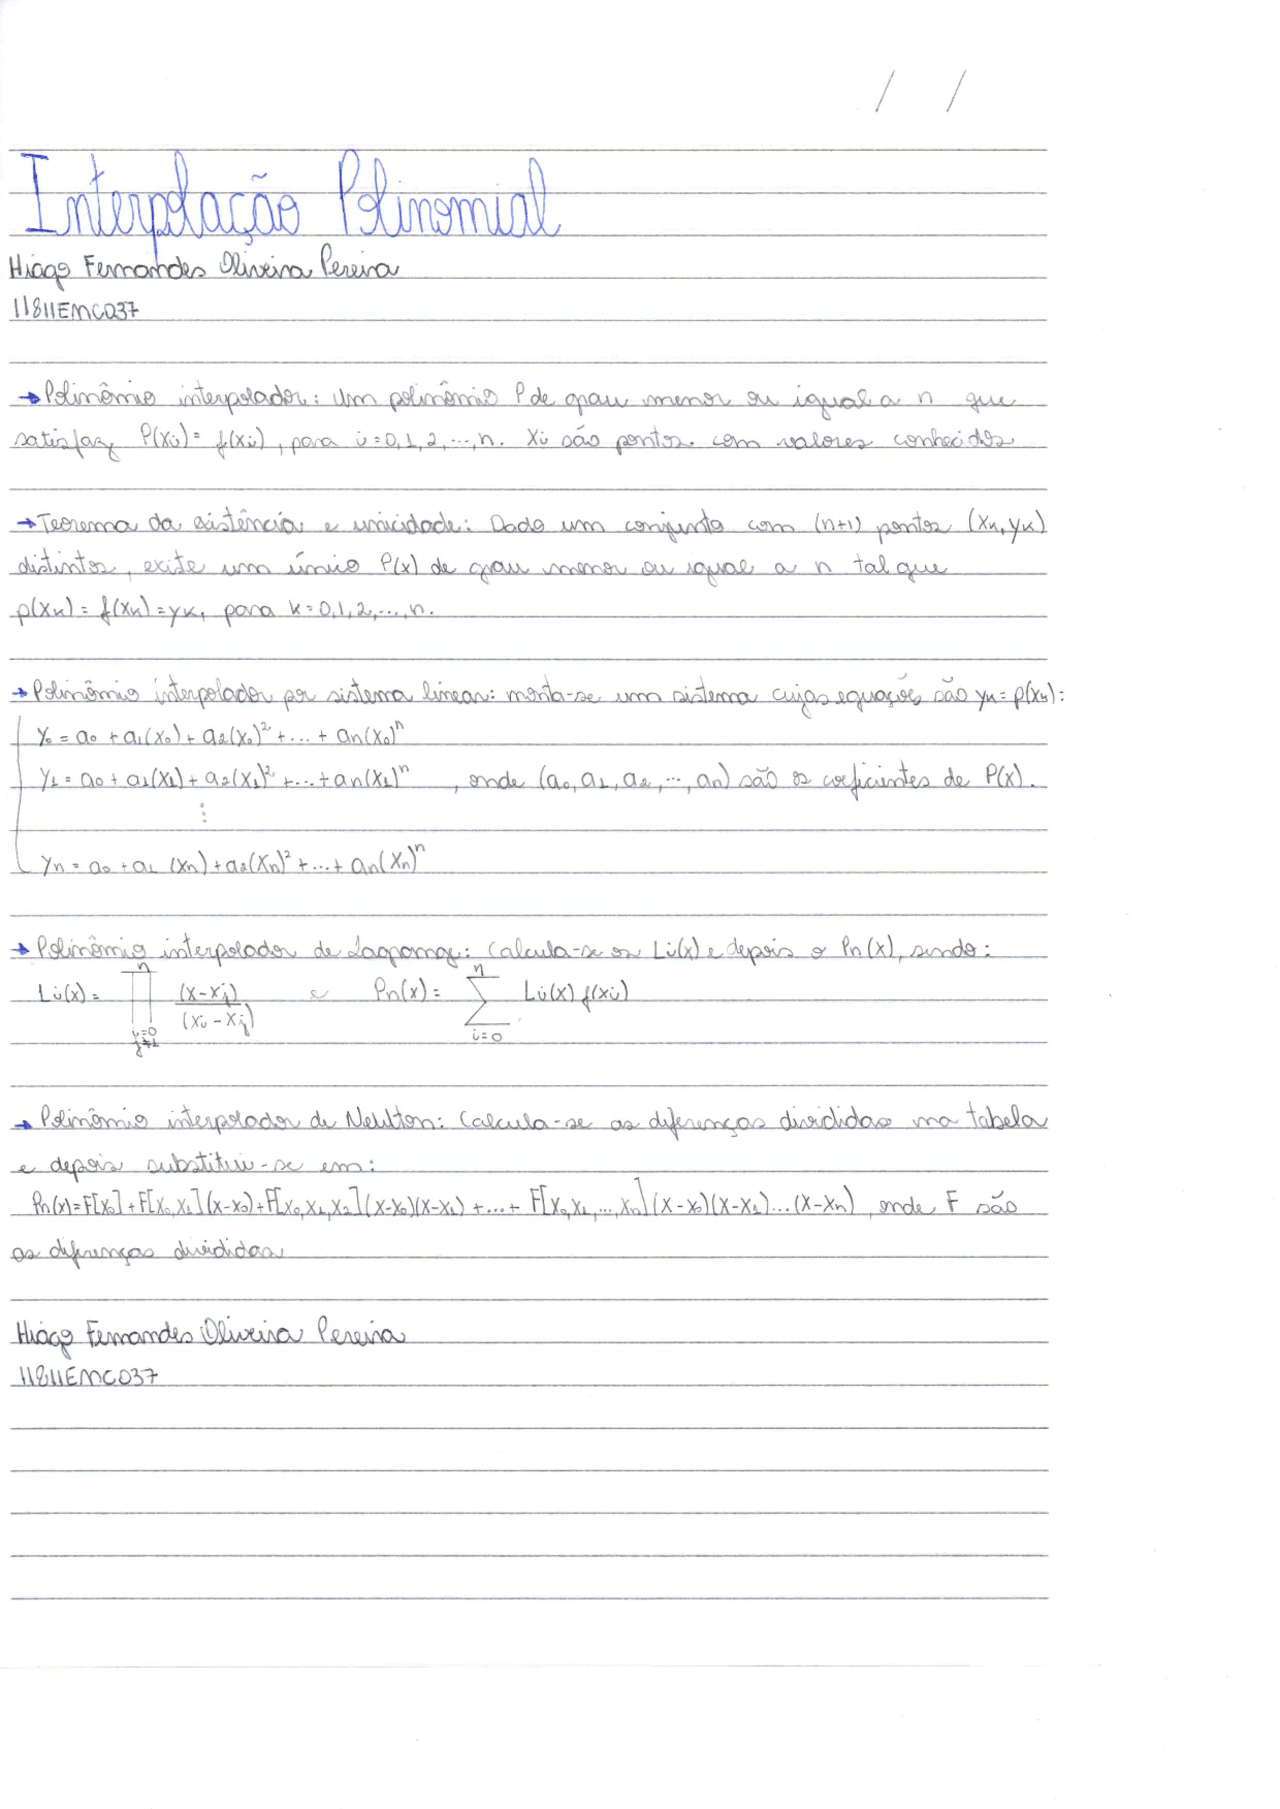 / /
Interpolação Polinomial
Hiago Fernandes Oliveira Pereira
11811EMC037
→ Polinômio interpolador: Um polinômio P de grau menor ou igual a n que
satisfaz P(xi) = f(xi), para i=0,1,2,...,n. Xi são pontos com valores conhecidos
→ Teorema da existência e unicidade: Dado um conjunto com (n+1) pontos (xk, yk)
distintos, exite um único P(x) de grau menor ou igual a n tal que
p(xk) = f(xk) = yk, para k=0,1,2,...,n.
→ Polinômio interpolador por sistema linear: monta-se um sistema cujas equações são yk = p(xk):
y₀ = a₀ + a₁(x₀) + a₂(x₀)² + ... + an(x₀)ⁿ
y₁ = a₀ + a₁(x₁) + a₂(x₁)² + ... + an(x₁)ⁿ , onde (a₀, a₁, a₂, ..., an) são os coeficientes de P(x).
⋮
yn = a₀ + a₁(xn) + a₂(xn)² + ... + an(xn)ⁿ
→ Polinômio interpolador de Lagrange: Calcula-se os Li(x) e depois o Pn(x), sendo:
n n
Li(x) = ∏ (x-xj)/(xi-xj) e Pn(x) = ∑ Li(x) f(xi)
i=0 i=0
→ Polinômio interpolador de Newton: Calcula-se as diferenças divididas na tabela
e depois substitui-se em:
Pn(x) = F[x₀] + F[x₀,x₁](x-x₀) + F[x₀,x₁,x₂](x-x₀)(x-x₁) + ... + F[x₀,x₁,...,xn](x-x₀)(x-x₁)...(x-xn), onde F são
as diferenças divididas
Hiago Fernandes Oliveira Pereira
11811EMC037